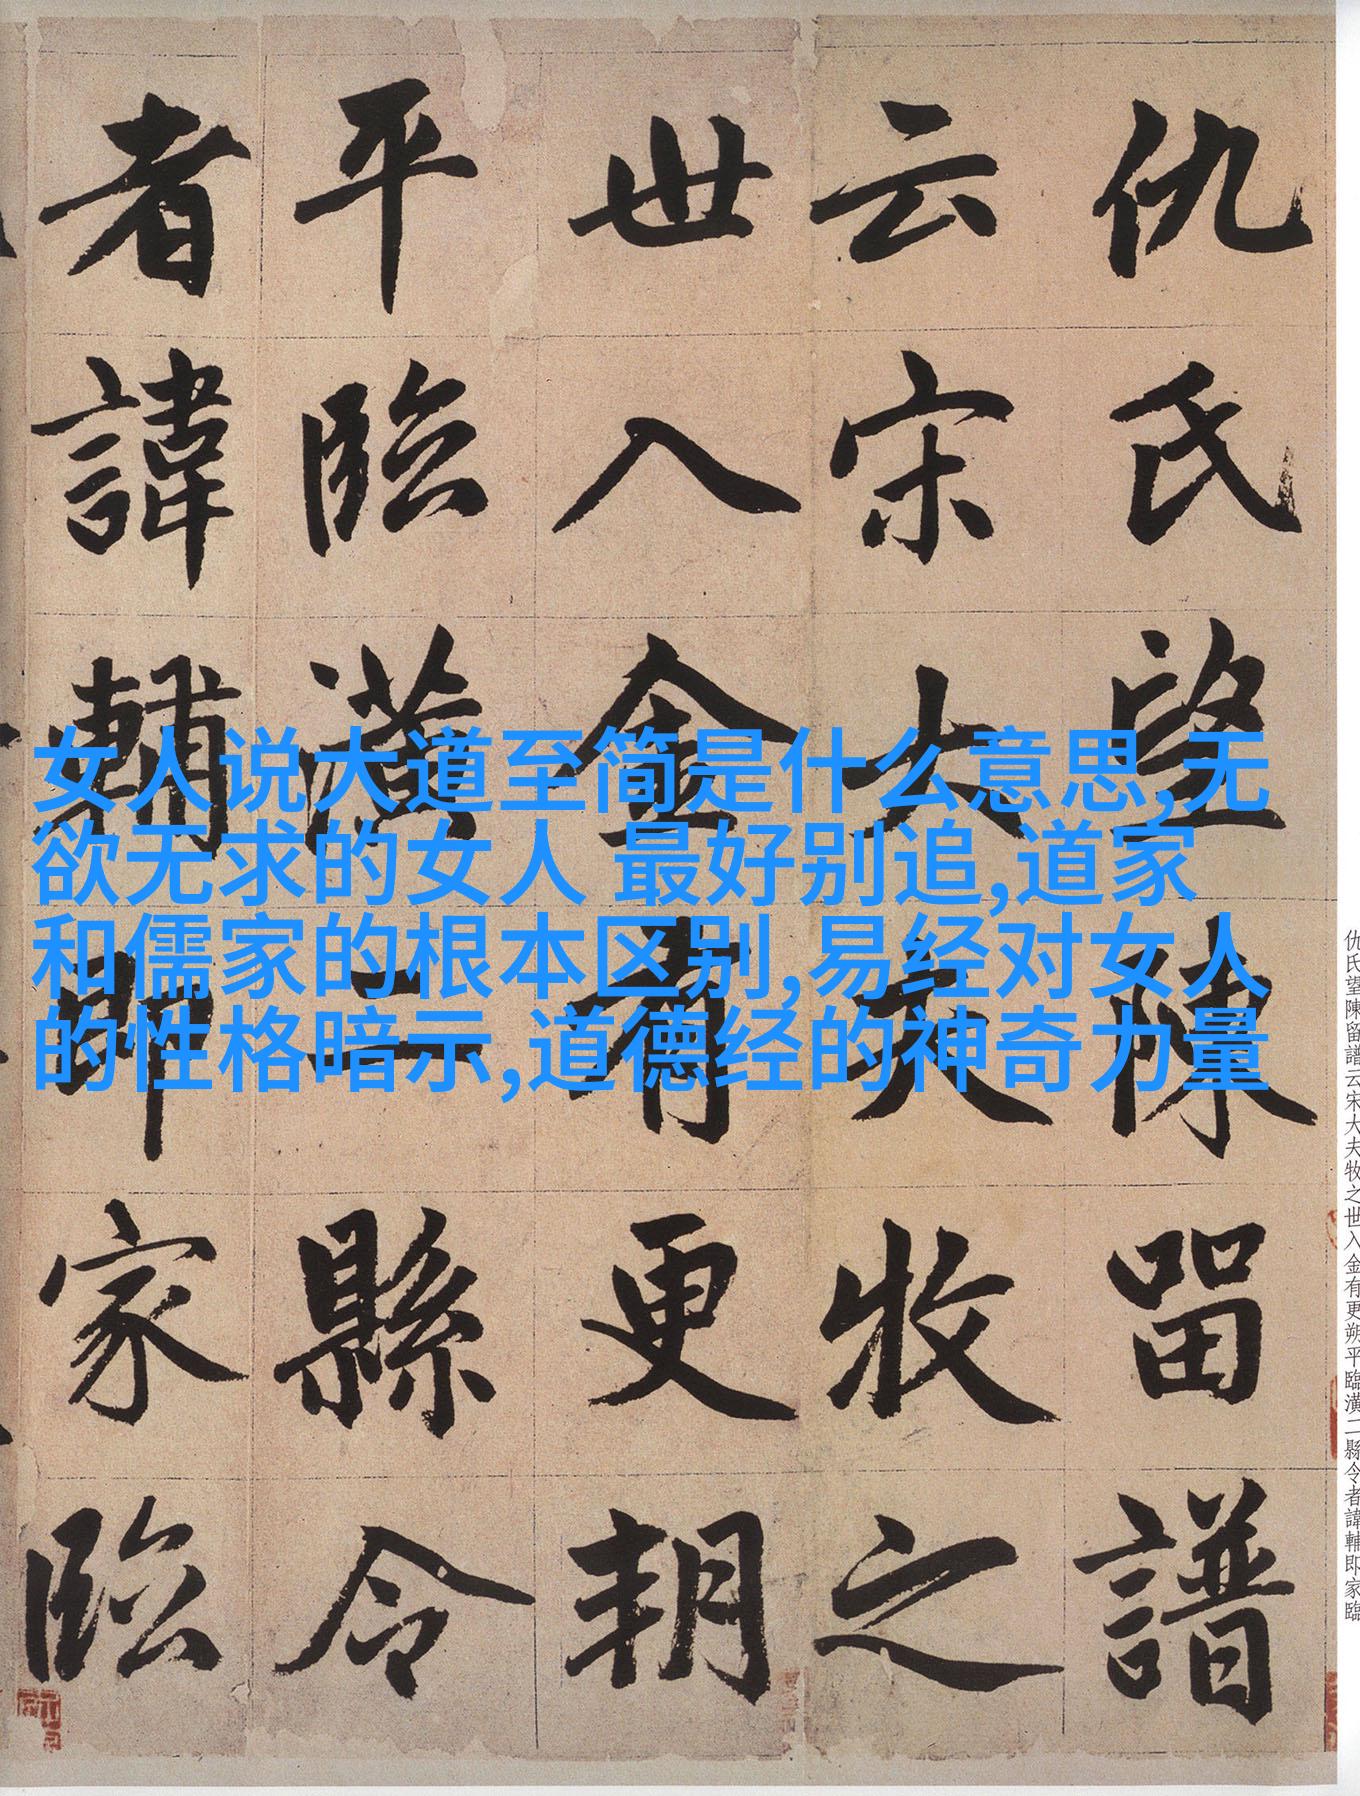 仇氏望陳留譜
云宋大夫牧之
世入金有更朔
平臨潢二縣令
者諱輔即家臨
女人说大道至简是什么意思,无
欲无求的女人 最好别追,道家
和儒家的根本区别,易经对女人
的性格暗示,道德经的神奇力量
仇氏望陳留譜云宋大夫牧之世入金有更朔平臨潢二縣令者諱輔即家臨